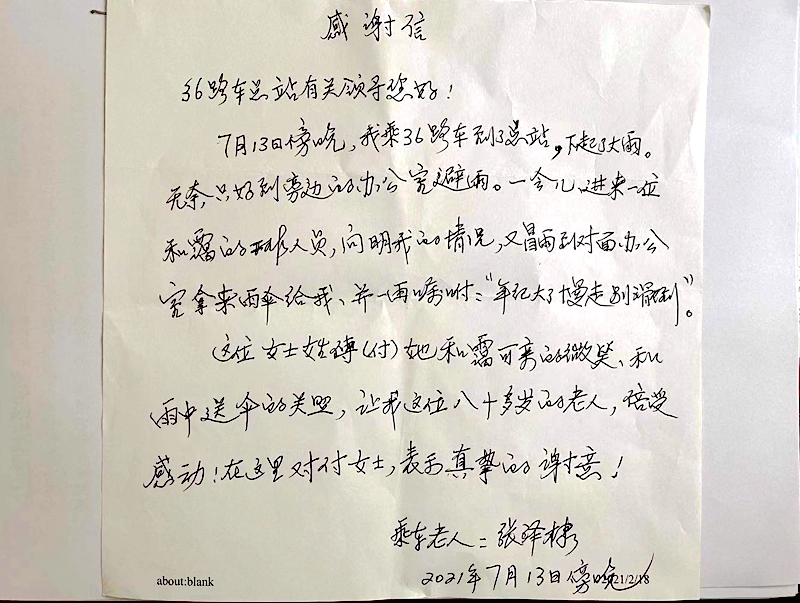 感谢信
36路车总站有关领导您好！
7月13日傍晚，我乘36路车到了总站，下起了大雨。
无奈，只好到旁边的办公室避雨。一会儿，进来一位
和霭的工作人员，问明我的情况，又冒雨到对面办公
室拿来雨伞给我、并一再嘱咐："年纪大了慢走别滑到"。
这位女士姓傅(付)她和霭可亲的微笑、和
雨中送伞的关照，让我这位八十多岁的老人，倍受
感动！在这里对付女士，表示真挚的谢意！
乘车老人：张泽棣
2021年7月13日傍晚
about:blank
2021/2/18